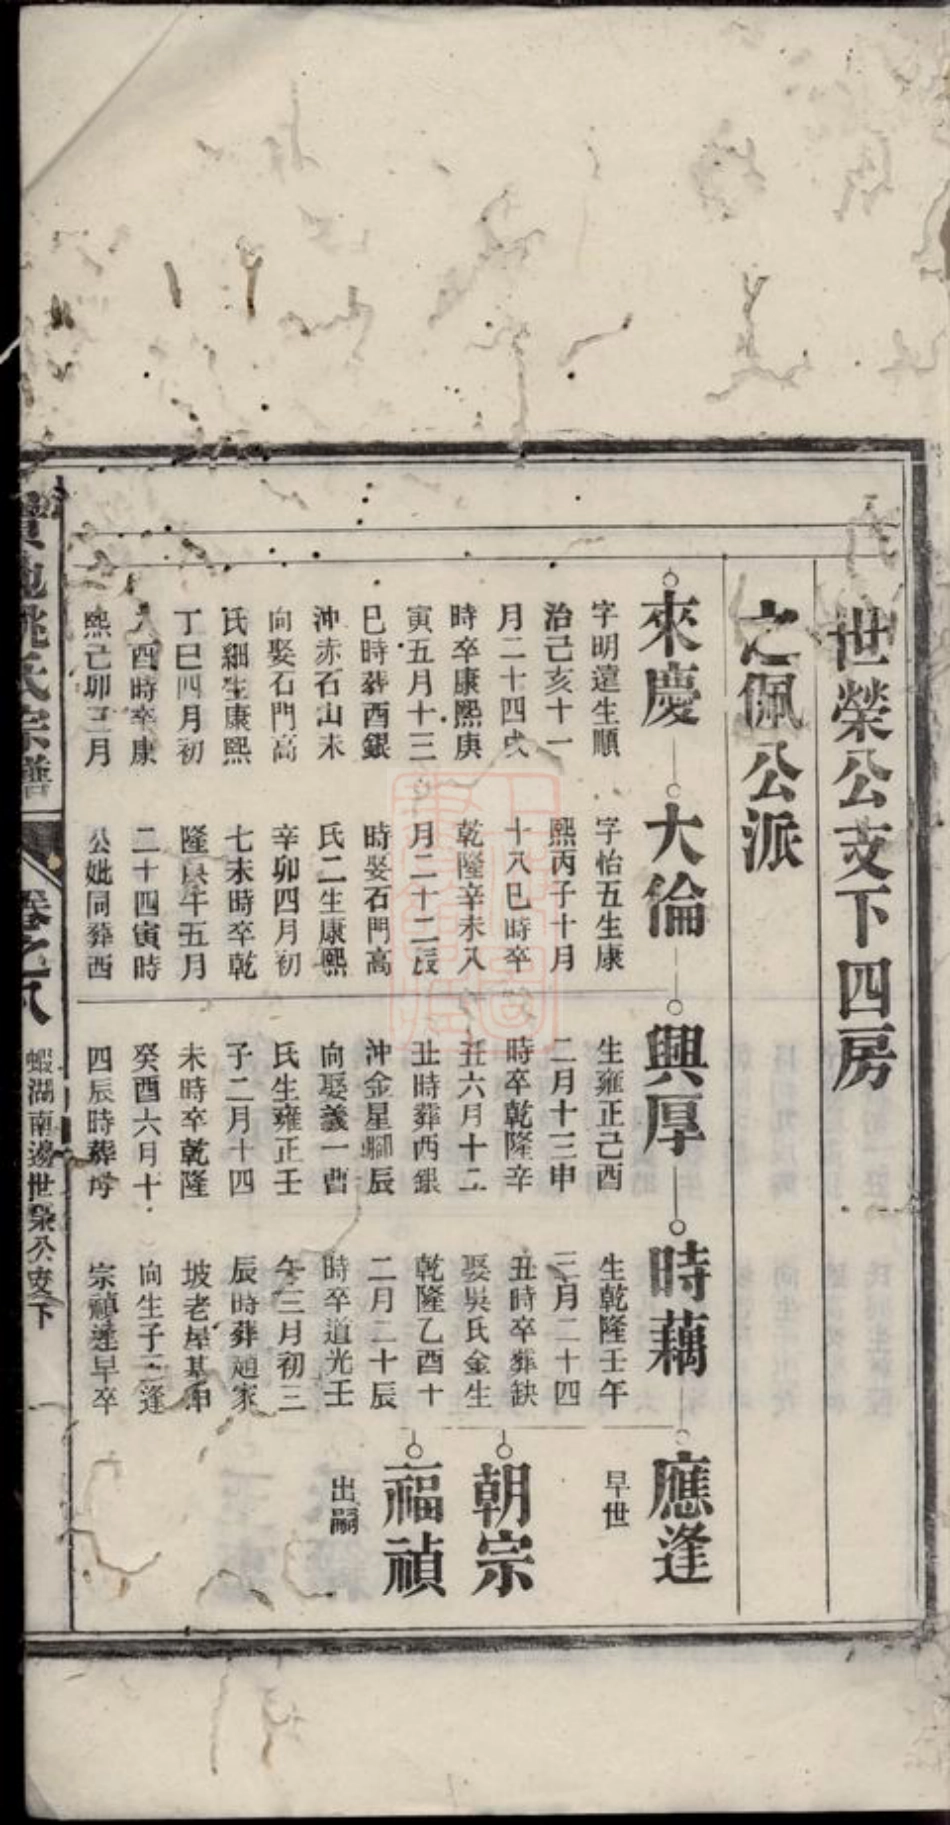 世榮公支下四房
之佩公派
來慶
字明遠生順
治己亥十一
月二十四戌
時卒康熙庚
寅五月十三
巳時葬酉銀
沖赤石山未
向娶石門高
氏細生康熙
丁巳四月初
八酉時卒康
熙己卯三月
大倫
字怡五生康
熙丙子十月
十八巳時卒
乾隆辛未八
月二十二辰
時娶石門高
氏二生康熙
辛卯四月初
七未時卒乾
隆庚午五月
二十四寅時
公妣同葬酉
興厚
生雍正己酉
二月十三申
時卒乾隆辛
丑六月十二
丑時葬西銀
沖金星䐃辰
向娶義一曹
氏生雍正壬
子二月十四
未時卒乾隆
癸酉六月十
四辰時葬
時藕
生乾隆壬午
三月二十四
丑時卒葬缺
娶吳氏金生
乾隆乙酉十
二月二十辰
時卒道光壬
午三月初三
辰時葬趙家
坡老屋基申
向生子三逢
宗禎逢早卒
應逢
早世
朝宗
福禎
出嗣
姚氏宗譜
卷之八
蝦湖南邊世榮公支下